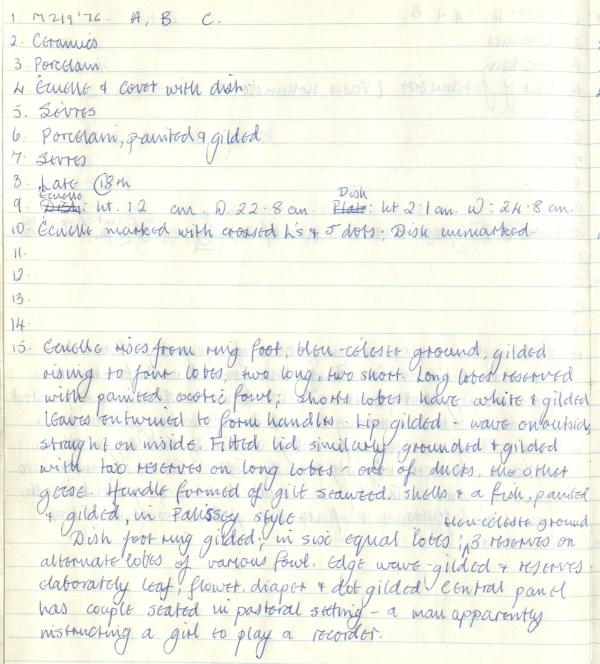 1 M219'76. A, B. C.
2. Ceramics
3. Porcelain
4 Écuelle & cover with dish.
5. Sèvres
6. Porcelain, painted & gilded
7. Sèvres
8. Late 18th
Ecuelle Dish
9. Dish: ht. 12 cm. D. 22.8 cm. Plate: ht 2.1 cm. W: 24.8 cm.
10. Écuelle marked with crossed L's & 5 dots; Dish unmarked.
11.
12.
13.
14.
15. Ecuelle rises from ring foot, bleu-céleste ground, gilded
rising to four lobes, two long, two short. Long lobes reserved
with painted exotic fowl; shorts lobes have white & gilded
leaves entwined to form handles. Lip gilded - wave on outside,
straight on inside. Fitted lid similarly grounded & gilded
with two reserves on long lobes - one of ducks, the other
geese. Handle formed of gilt seaweed, shells & a fish, painted
& gilded, in Palissey style
bleu-céleste ground
Dish foot ring gilded; in six equal lobes; 3 reserves on
alternate lobes of various fowl. Edge wave-gilded & reserves
elaborately leaf, flower, diaper & dot gilded Central panel
has couple seated in pastoral setting - a man apparently
instructing a girl to play a recorder.